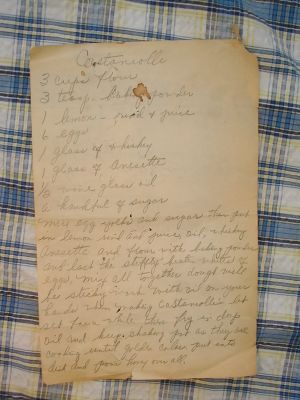 Castanvolle
3 cups flour
3 teasp - Baking powder
1 lemon - rind & juice
6 eggs
1 glass of whiskey
1 glass of Anesette
1/2 wine glass oil
a handful of sugar
Mix egg yolks and sugar then put
in lemon rind and juice, oil, whiskey
Anesette and flour with baking powder
and last the stiffly beaten whites of
eggs. Mix all together dough will
be sticky work with oil on your
hands when making Castanvolle. let
set for a while then fry in deep
oil and keep shaking pot as they are
cooking until golden color put into
dish and pour honey over all.